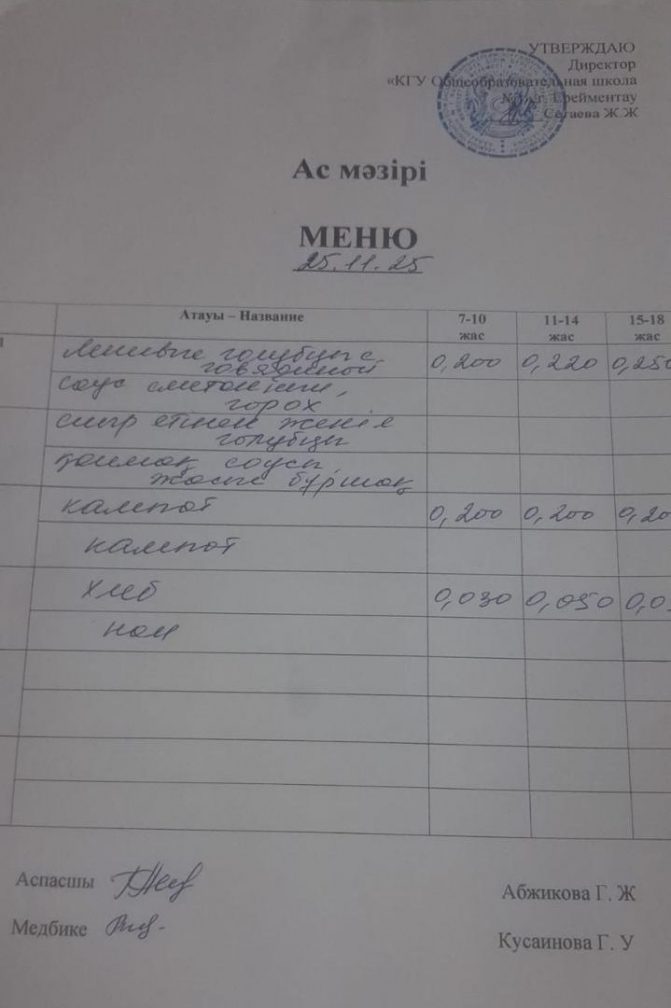 УТВЕРЖДАЮ
Директор
«КГУ Общеобразовательная школа
г. Ерейментау
Сагаева Ж.Ж
Ас мәзірі
МЕНЮ
25.11.25
Атауы – Название 7-10 жас 11-14 жас 15-18 жас
Ленивые голубцы с 0,200 0,220 0,250
говядиной
соус сметанный,
горох
сиыр етінен
голубцы
қаймақ соусы,
жасыл бұршақ
кампот 0,200 0,200 0,20
кампот
хлеб 0,030 0,050 0,0
нан
Аспасшы Абжикова Г. Ж
Медбике Кусаинова Г. У